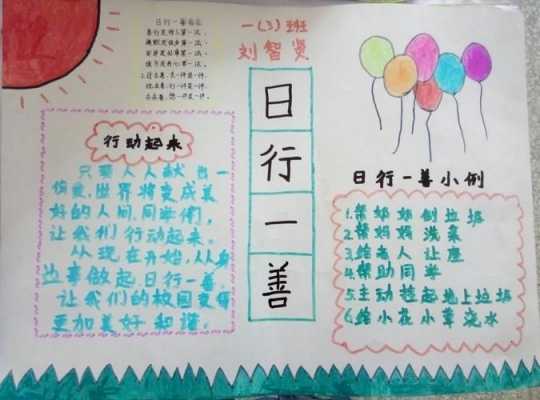 日行一善
一(3)班
刘智贤
日
行
一
善
行动起来
只要人人献出一
份爱,世界将变成美
好的人间,同学们,
让我们行动起来。
从现在开始,从身
边事做起日行一善,
让我们的校园变得
更加美好和谐。
日行一善小例
1.帮奶奶倒垃圾
2.帮妈妈洗菜
3.给老人让座
4.帮助同学
5.主动捡起地上垃圾
6.给小花小草浇水